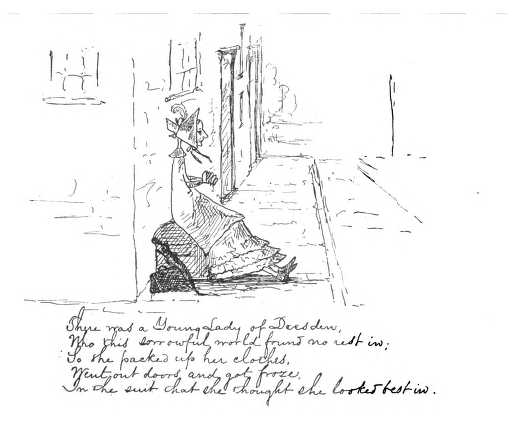 There was a Young Lady of Dresden,
Who this sorrowful world found no rest in;
So she packed up her clothes,
Went out doors, and got froze,
In the suit that she thought she looked best in.